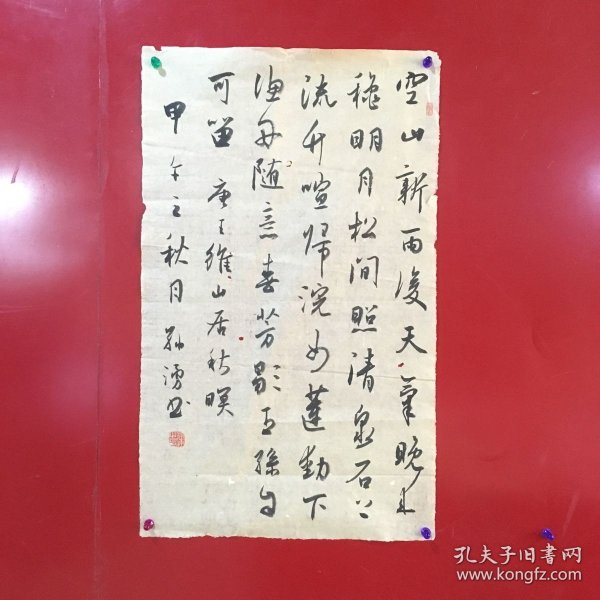 空山新雨後天氣晚来
秋明月松间照清泉石上
流竹喧归浣女莲动下
渔舟随意春芳歇王孙自
可留 唐王维山居秋暝
甲午之秋月 孙涛书
孔夫子旧书网
www.kongfz.com